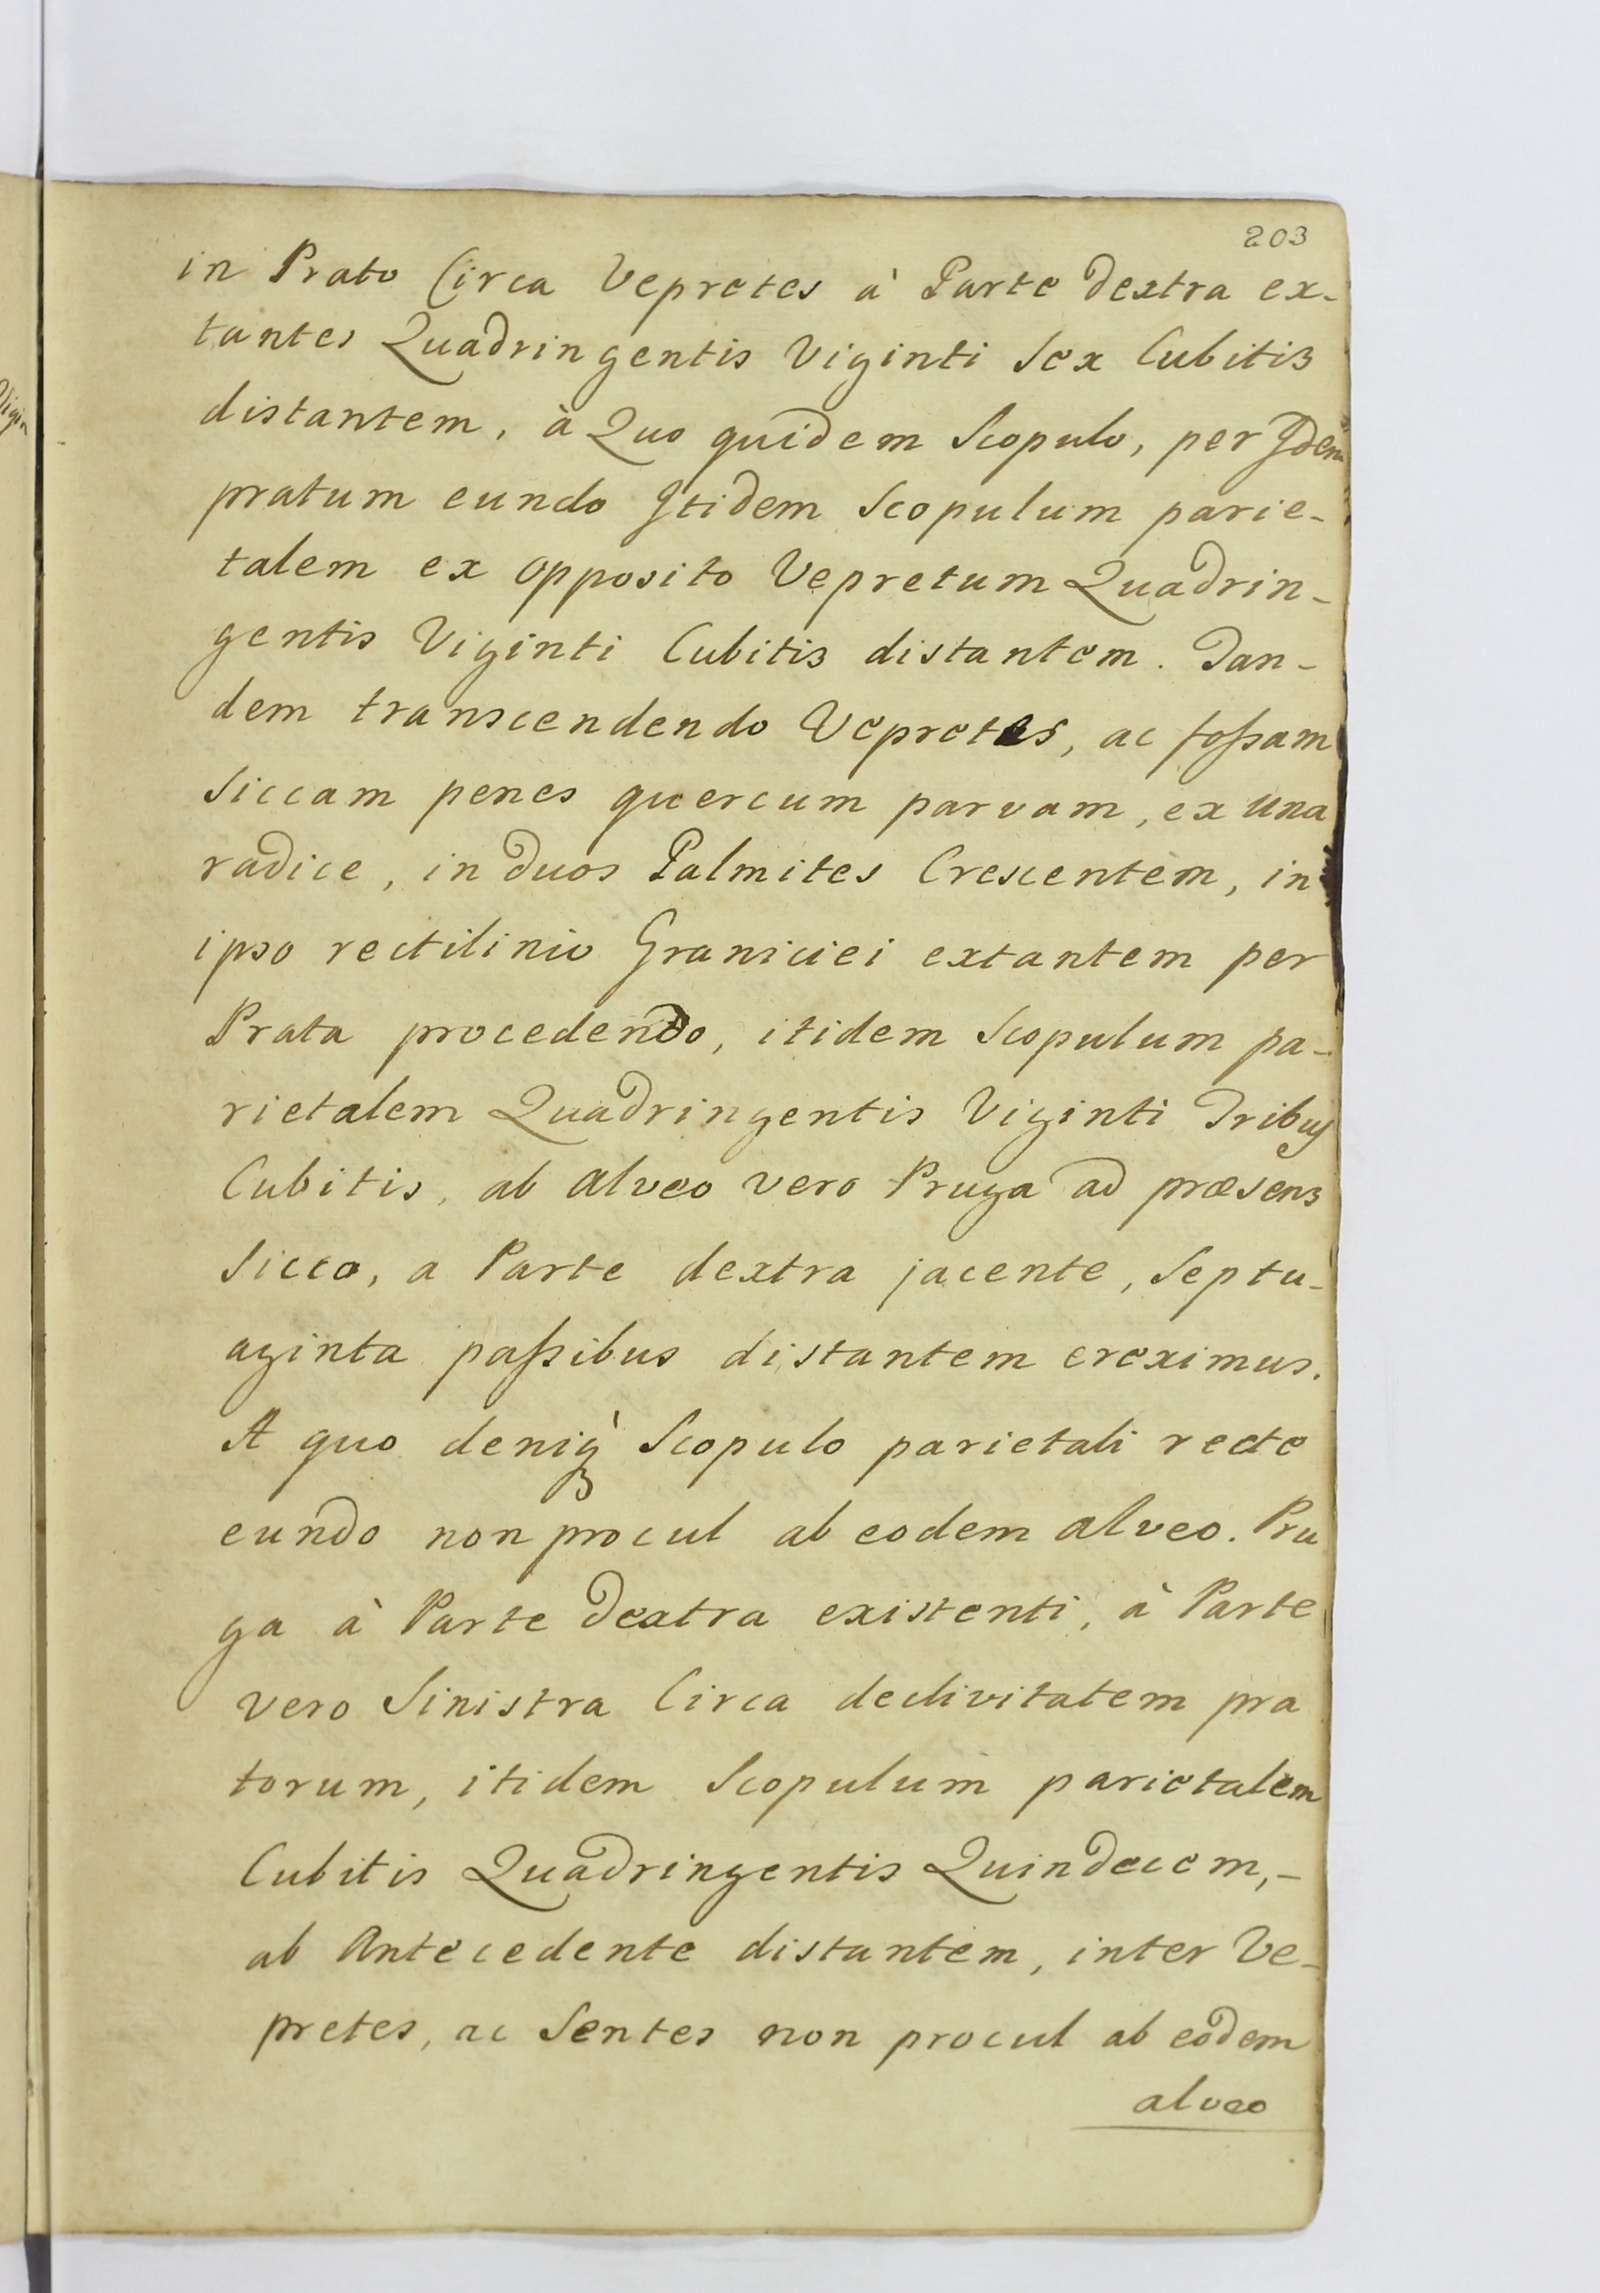 203
in Prato Circa Vepretes à Parte dextra ex-
tantes Quadringentis Viginti Sex Cubitis
distantem, à Quo quidem Scopulo, per Idem
pratum eundo Itidem Scopulum parie-
talem ex opposito Vepretum Quadrin-
gentis Viginti Cubitis distantem. Tan-
dem transcendendo Vepretes, ac fossam
Siccam penes quercum parvam, ex una
radice, in duos Palmites Crescentem, in
ipso rectilinio Graniciei extantem per
Prata procedendo, itidem Scopulum pa-
rietalem Quadringentis Viginti Tribus
Cubitis, ab alveo vero Pruga ad præsens
Sicco, a Parte dextra jacente, Septu-
aginta passibus distantem ereximus.
A quo deniq Scopulo parietali recte
eundo non procul ab eodem alveo. Pru
ga à Parte dextra existenti, à Parte
vero Sinistra Circa declivitatem pra
torum, itidem Scopulum parietalem
Cubitis Quadringentis Quindecem,-
ab Antecedente distantem, inter Ve-
pretes, ac Sentes non procul ab eodem
alveo